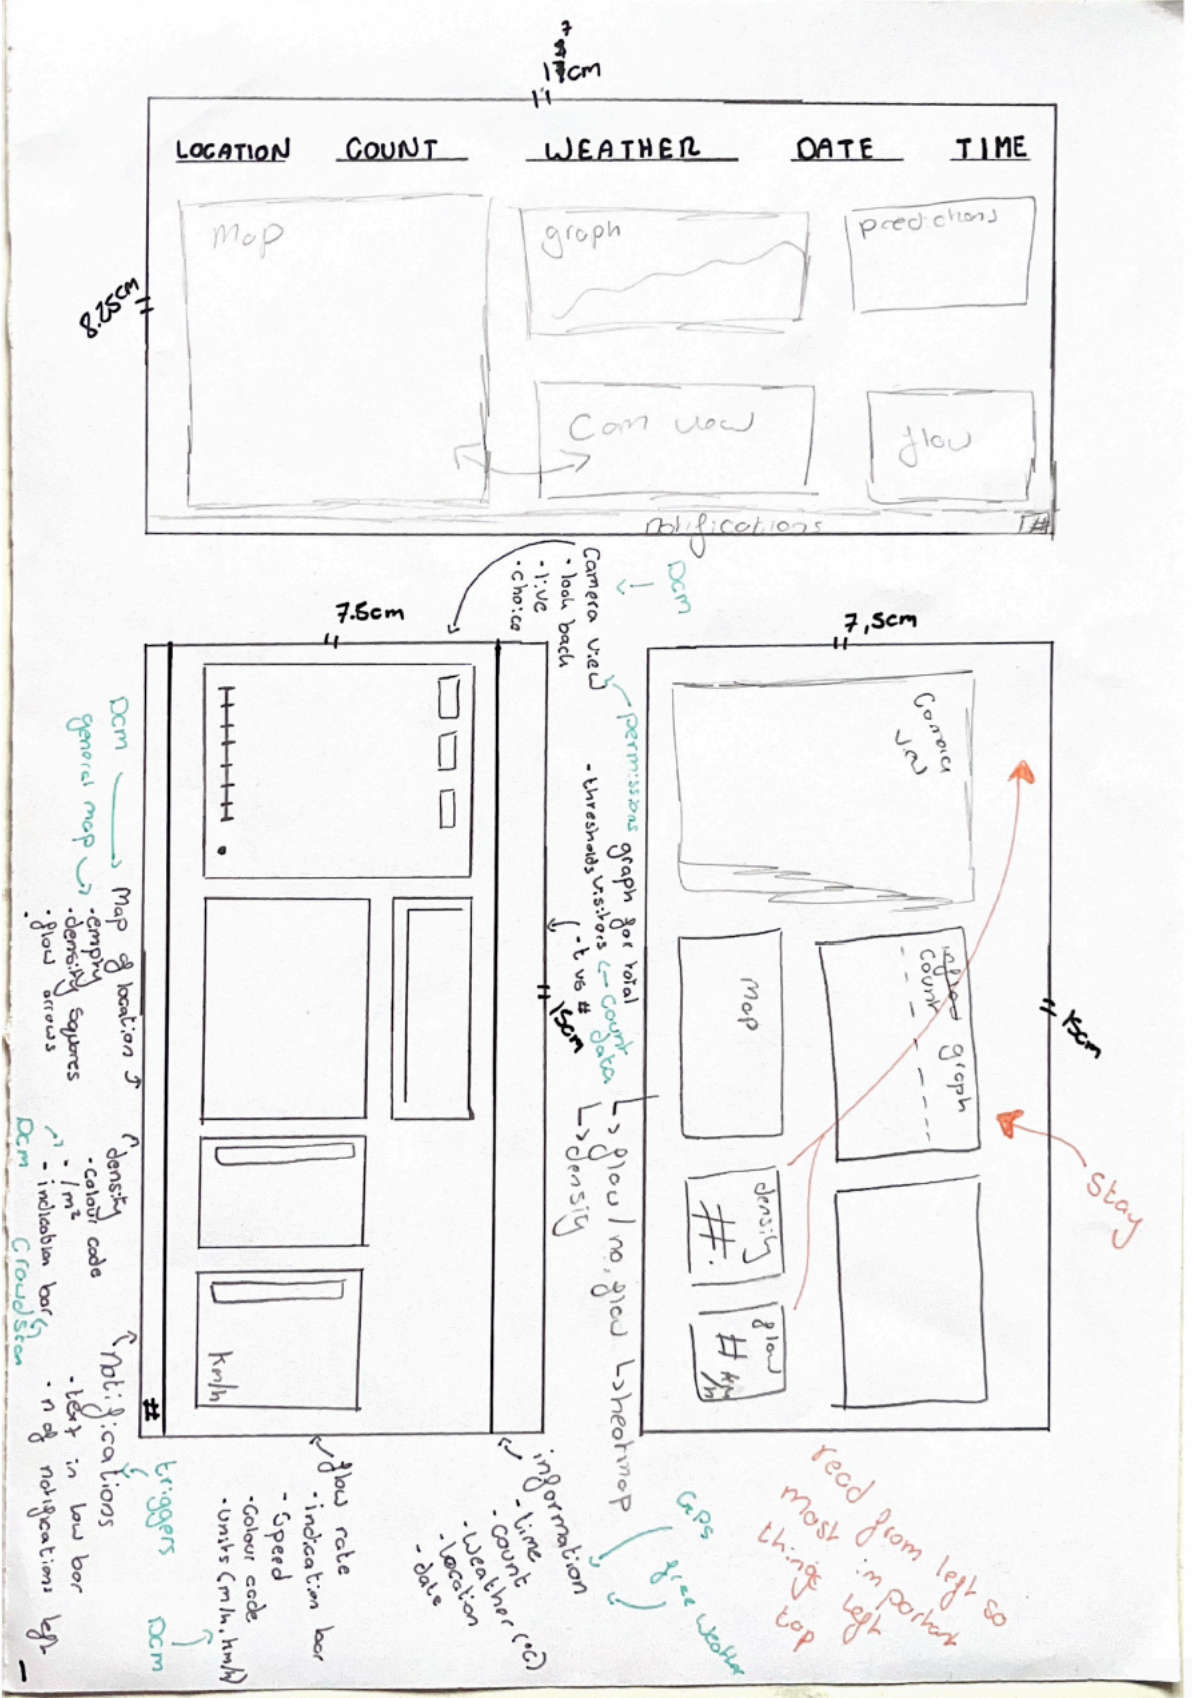 7
17cm
LOCATION COUNT WEATHER DATE TIME
Map
graph
predictions
8.25cm
Cam view
flow
notifications
#
Camera view
- look back
- live
- choice
Dcm
permissions
7.5cm
graph for total
visitors
- thresholds
- t vs #
count
data
↳ flow / no. flow ↳ heatmap
↳ density
15cm
km/h
#
Dcm
general map
Map of location
- empty
- density squares
- flow arrows
density
- colour code
- /m²
- indication bar
Dcm
Crowdscan
Notifications
- text in low bar
- n of notifications left
triggers
flow rate
- indication bar
- speed
- colour code
- units (m/h, km/h)
Dcm
information
- time
- count
- weather (°C)
- location
- date
GPS
free weather
7,5cm
Camera
view
Map
count graph
density
#
flow
#
km
/h
15cm
Stay
read from left so
most important
things left
top